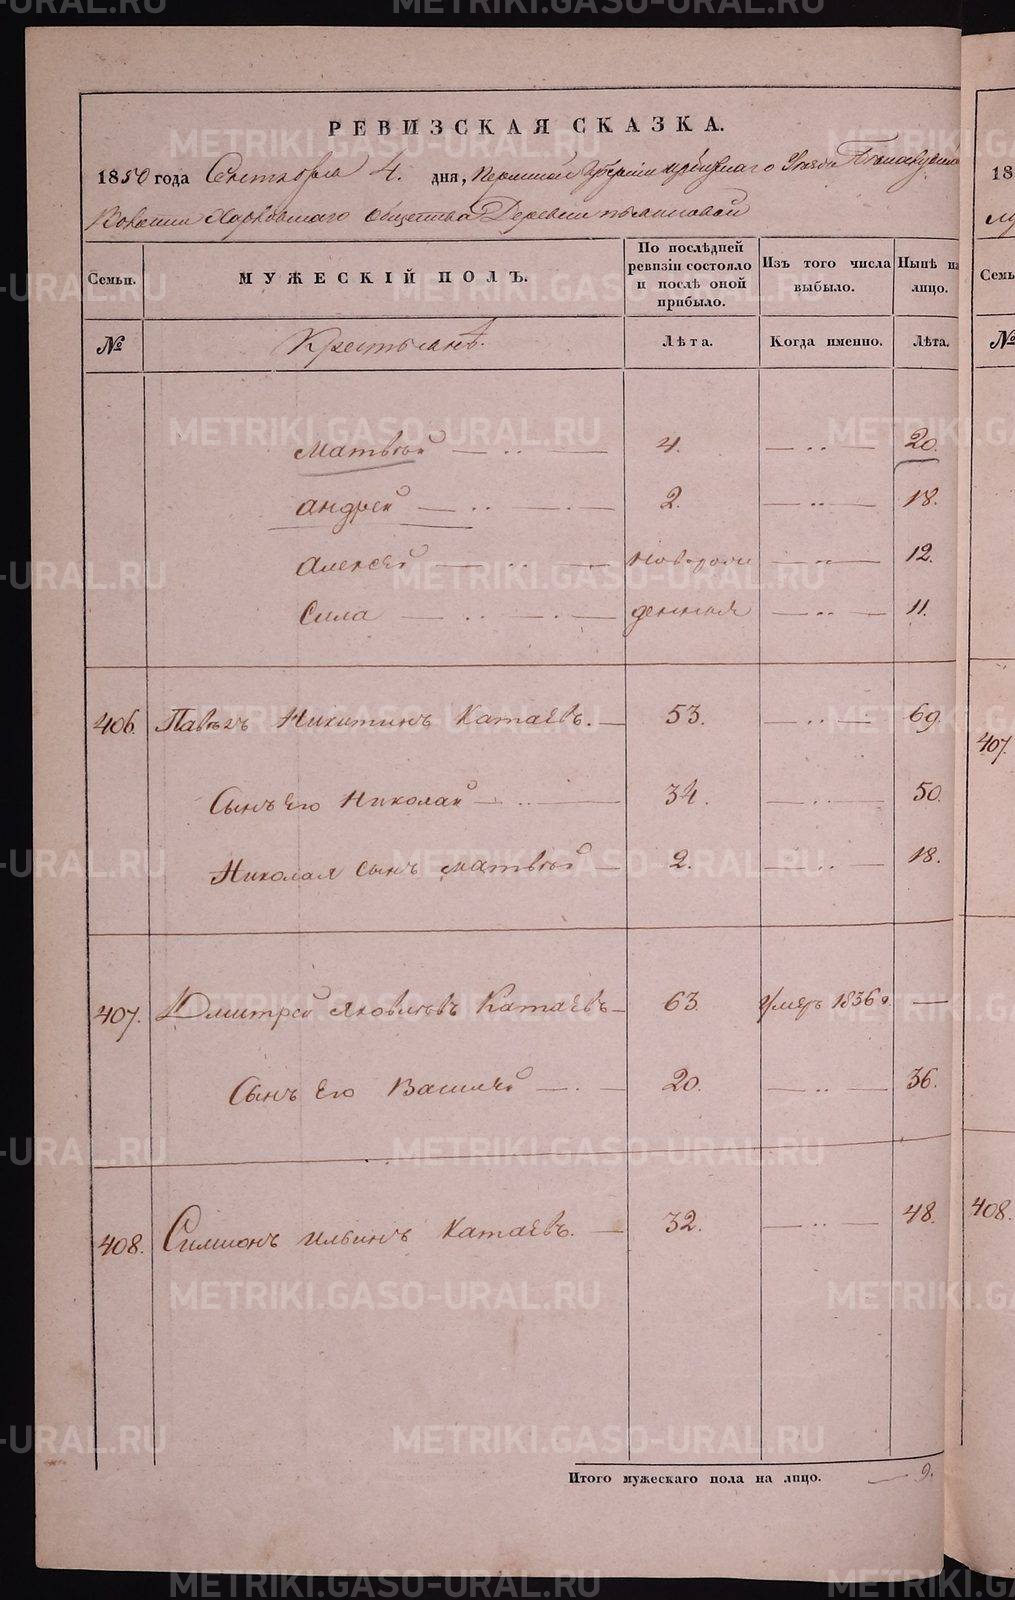 РЕВИЗСКАЯ СКАЗКА.
1850 года Сентября 4. дня, Пермской Губернии Ирбитскаго Уезда
Волости Харловскаго Общества Деревни
Семьи. МУЖЕСКІЙ ПОЛЪ. По послѣдней ревизіи состояло и послѣ оной прибыло. Изъ того числа выбыло. Нынѣ на лицо.
№ Крестьянѣ. Лѣта. Когда именно. Лѣта.
Матвѣй 4. 20.
Андрей 2. 18.
Алексей новорож 12.
Сила денныя 11.
406. Павелъ Никитинъ Катаевъ. 53. 69.
Сынъ Его Николай 34. 50.
Николая сынъ Матвѣй 2. 18.
407. Дмитрей Яковлевъ Катаевъ 63. умеръ 1836 г.
Сынъ Его Василей 20. 36.
408. Симионъ Ильинъ Катаевъ. 32. 48.
Итого мужескаго пола на лицо. 9.
18
Семь
№
407.
408.
METRIKI.GASO-URAL.RU